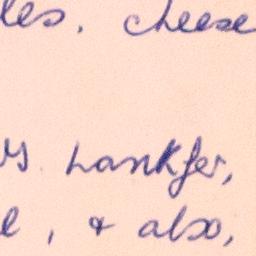 les. cheese
rs hankfer,
e, & also,